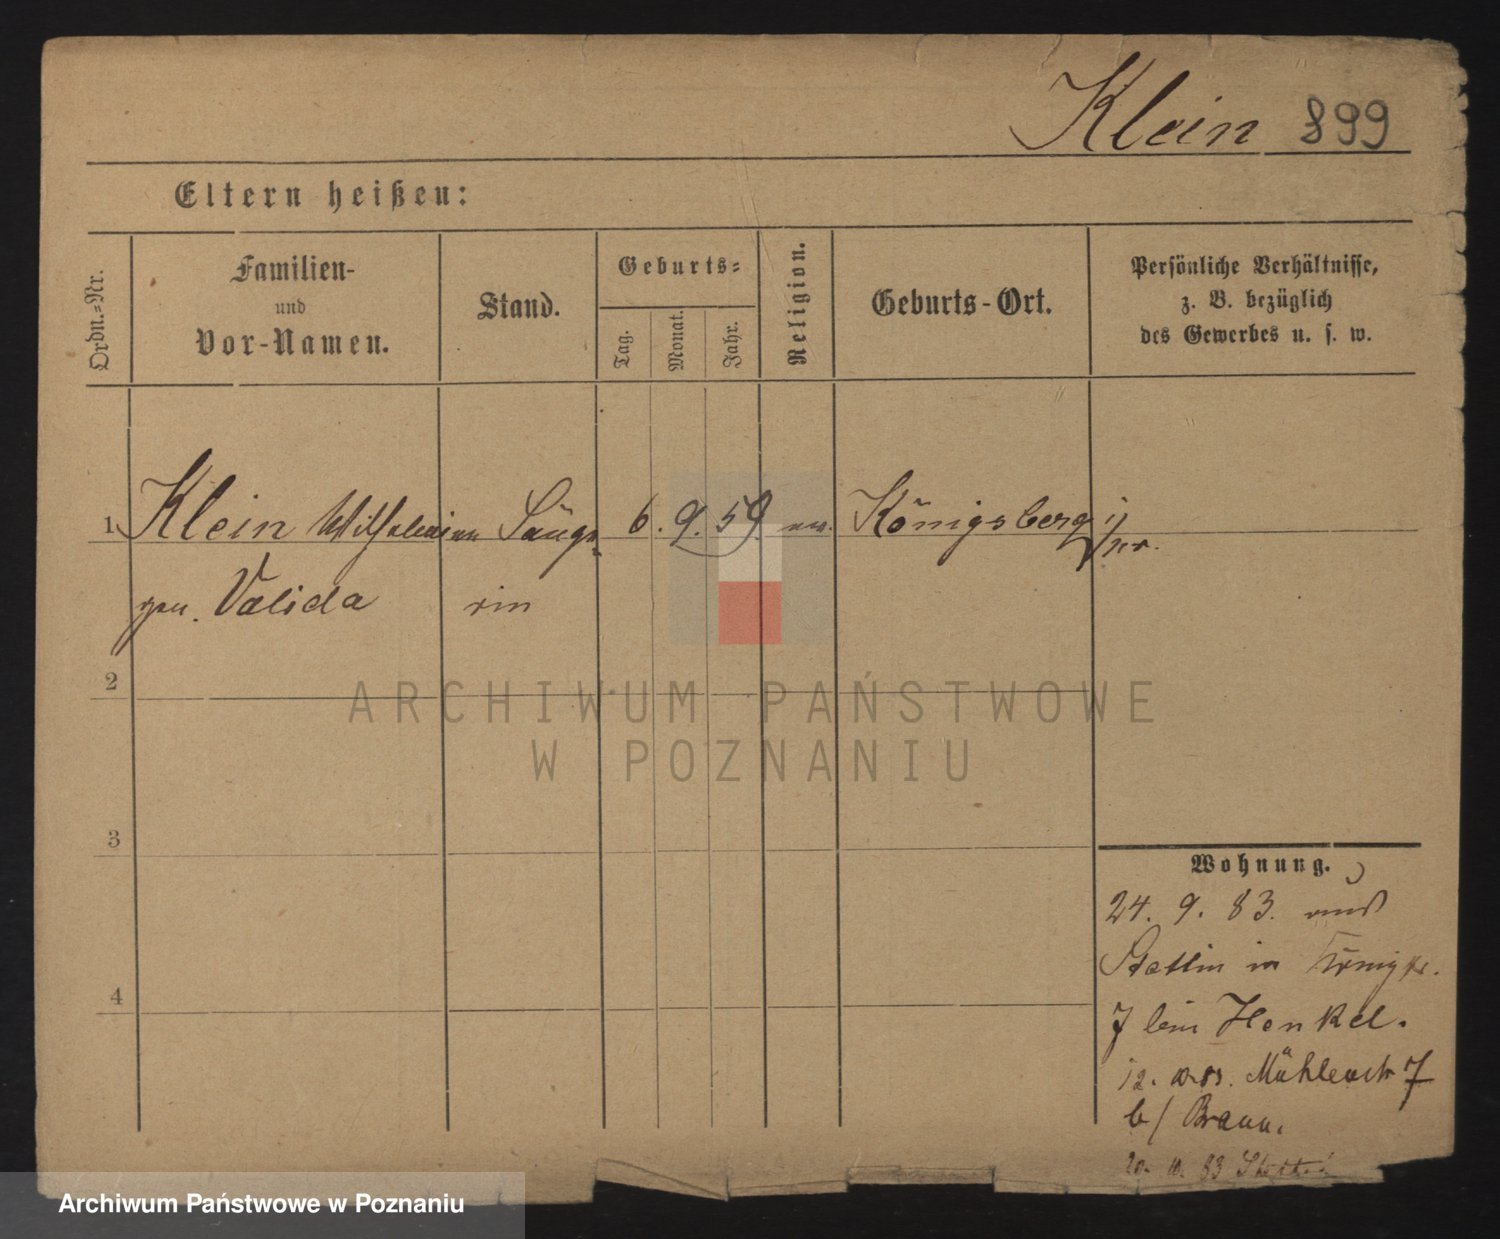 Klein 899
Eltern heißen:
Ordn.-Nr.
Familien-
und
Vor-Namen.
Stand.
Geburts-
Tag.
Monat.
Jahr.
Religion.
Geburts-Ort.
Persönliche Verhältnisse,
z. B. bezüglich
des Gewerbes u. s. w.
1 Klein Wilhelmine Sänge- 6. 9. 59. ev. Königsberg i/
gen. Valida rin Pr.
2
3
4
Wohnung.
24. 9. 83. aus
Stettin in Königstr.
7 bei Henkel.
12. 10. 83. Mühlenstr 7
b/ Braun.
20. 10. 83 Stettin
ARCHIWUM PAŃSTWOWE
W POZNANIU
Archiwum Państwowe w Poznaniu